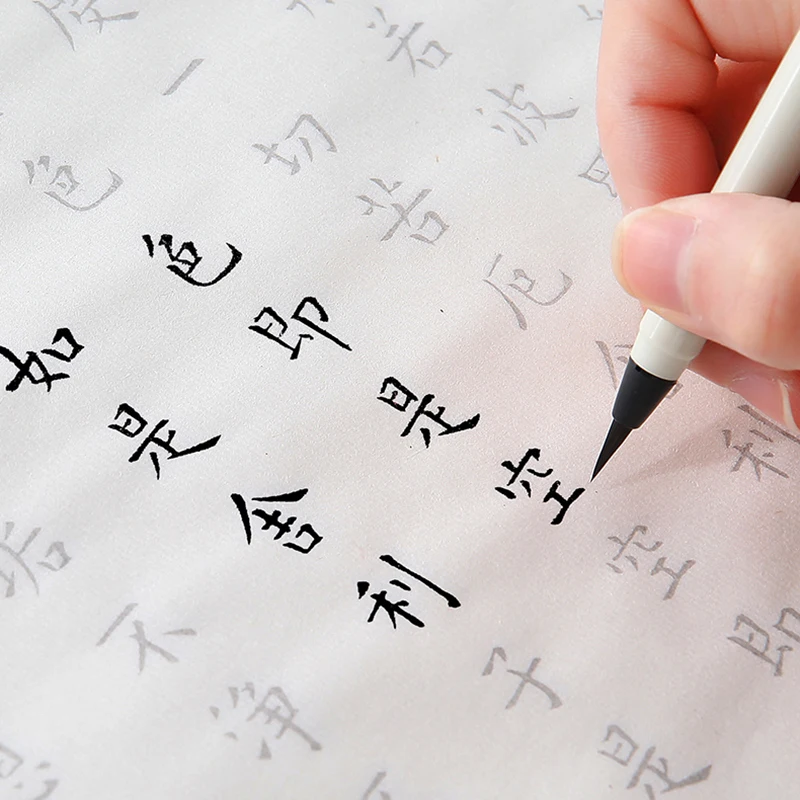 若波
度一切苦厄舍利
色色即是空空即
如是舍利子是
垢不净